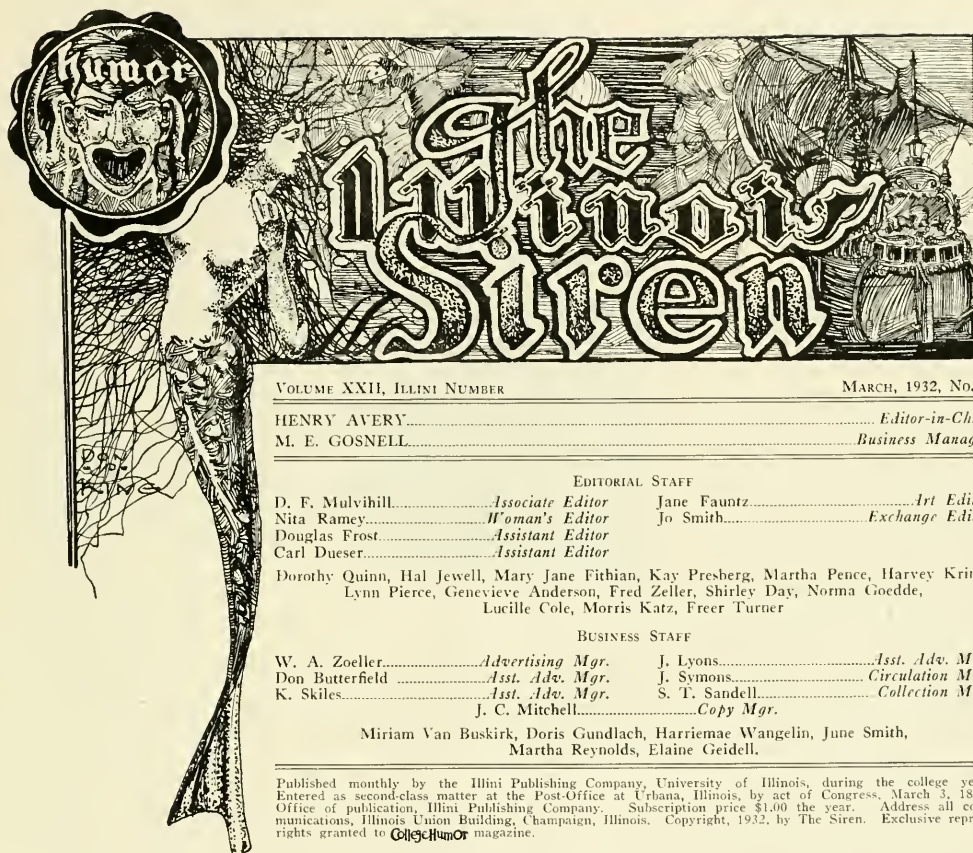 Humor
The
Illinois
Siren
DON
KING
VOLUME XXII, ILLINI NUMBER MARCH, 1932, No.
HENRY AVERY Editor-in-Ch
M. E. GOSNELL Business Manag
EDITORIAL STAFF
D. F. Mulvihill Associate Editor Jane Fauntz Art Edi
Nita Ramey Woman's Editor Jo Smith Exchange Edi
Douglas Frost Assistant Editor
Carl Dueser Assistant Editor
Dorothy Quinn, Hal Jewell, Mary Jane Fithian, Kay Presberg, Martha Pence, Harvey Krin
Lynn Pierce, Genevieve Anderson, Fred Zeller, Shirley Day, Norma Goedde,
Lucille Cole, Morris Katz, Freer Turner
BUSINESS STAFF
W. A. Zoeller Advertising Mgr. J. Lyons Asst. Adv. M
Don Butterfield Asst. Adv. Mgr. J. Symons Circulation M
K. Skiles Asst. Adv. Mgr. S. T. Sandell Collection M
J. C. Mitchell Copy Mgr.
Miriam Van Buskirk, Doris Gundlach, Harriemae Wangelin, June Smith,
Martha Reynolds, Elaine Geidell.
Published monthly by the Illini Publishing Company, University of Illinois, during the college ye
Entered as second-class matter at the Post-Office at Urbana, Illinois, by act of Congress, March 3, 18
Office of publication, Illini Publishing Company. Subscription price $1.00 the year. Address all co
munications, Illinois Union Building, Champaign, Illinois. Copyright, 1932, by The Siren. Exclusive repr
rights granted to CollegeHumor magazine.